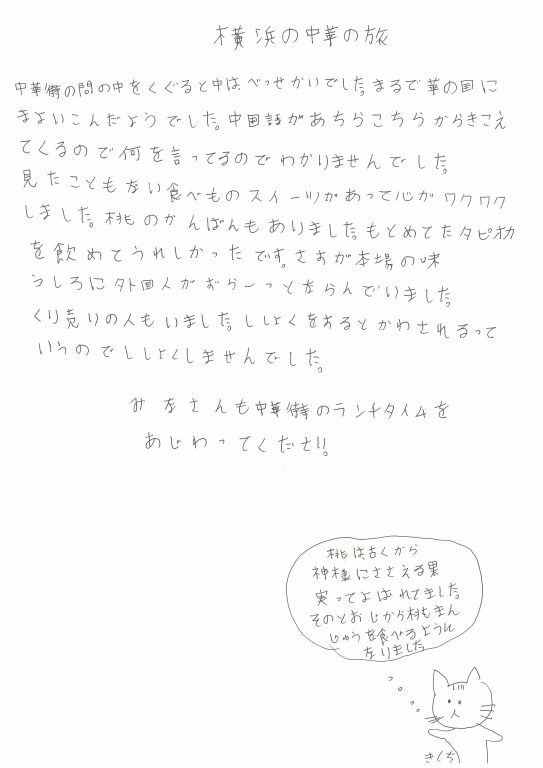 横浜の中華の旅
中華街の門の中をくぐると中は、べっせかいでした。まるで華の国に
まよいこんだようでした。中国語があちらこちらからきこえ
てくるので何を言ってるのでわかりませんでした。
見たこともない食べものスイーツがあって心がワクワク
しました。桃のかんばんもありました。もとめてたタピオカ
を飲めてうれしかったです。さすが本場の味
うしろに外国人がずらーっとならんでいました。
くり売りの人もいました。ししょくをするとかわされるって
いうのでししょくしませんでした。
みなさんも中華街のランチタイムを
あじわってください。
桃は古くから
神様にささえる果
実ってよばれてました。
そのとおじから桃もまん
じゅうを食べるように
なりました
きくち